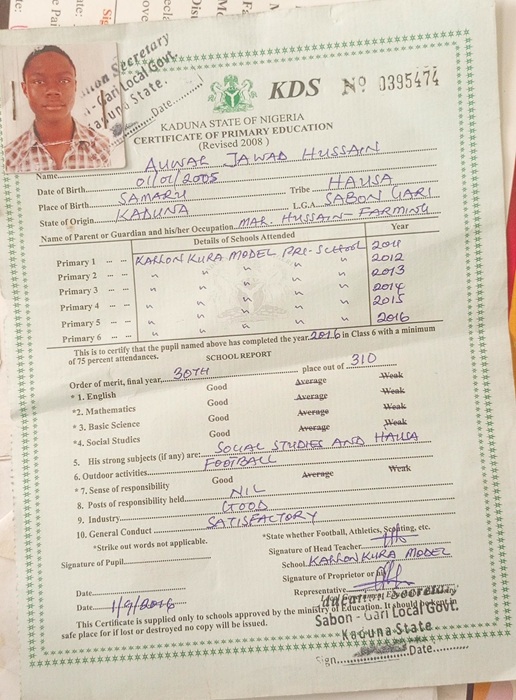 Secretary
Local Govt.
State.
Date
KDS Nº 0395474
KADUNA STATE OF NIGERIA
CERTIFICATE OF PRIMARY EDUCATION
(Revised 2008)
Name AUWAL JAWAD HUSSAIN
Date of Birth 01/01/2005
Place of Birth SAMARU Tribe HAUSA
State of Origin KADUNA L.G.A. SABON GARI
Name of Parent or Guardian and his/her Occupation MAL. HUSSAIN - FARMING
Details of Schools Attended Year
Primary 1 KALLON KURA MODEL PRI. SCHOOL 2011
Primary 2 " " " " " 2012
Primary 3 " " " " " 2013
Primary 4 " " " " " 2014
Primary 5 " " " " " 2015
Primary 6 " " " " " 2016
This is to certify that the pupil named above has completed the year 2016 in Class 6 with a minimum
of 75 percent attendances.
SCHOOL REPORT
Order of merit, final year 30TH place out of 310
*1. English Good Average Weak
*2. Mathematics Good Average Weak
*3. Basic Science Good Average Weak
*4. Social Studies Good Average Weak
5. His strong subjects (if any) are: SOCIAL STUDIES AND HAUSA
6. Outdoor activities FOOTBALL
*7. Sense of responsibility Good Average Weak
8. Posts of responsibility held NIL
9. Industry GOOD
10. General Conduct SATISFACTORY
*Strike out words not applicable. *State whether Football, Athletics, Scouting, etc.
Signature of Pupil Signature of Head Teacher
School KALLON KURA MODEL
Signature of Proprietor or his
Date Representative
Date 1/9/2016
This Certificate is supplied only to schools approved by the ministry of Education. It should be kept in
safe place for if lost or destroyed no copy will be issued.
Education Secretary
Sabon - Gari Local Govt.
Kaduna State
Sign Date